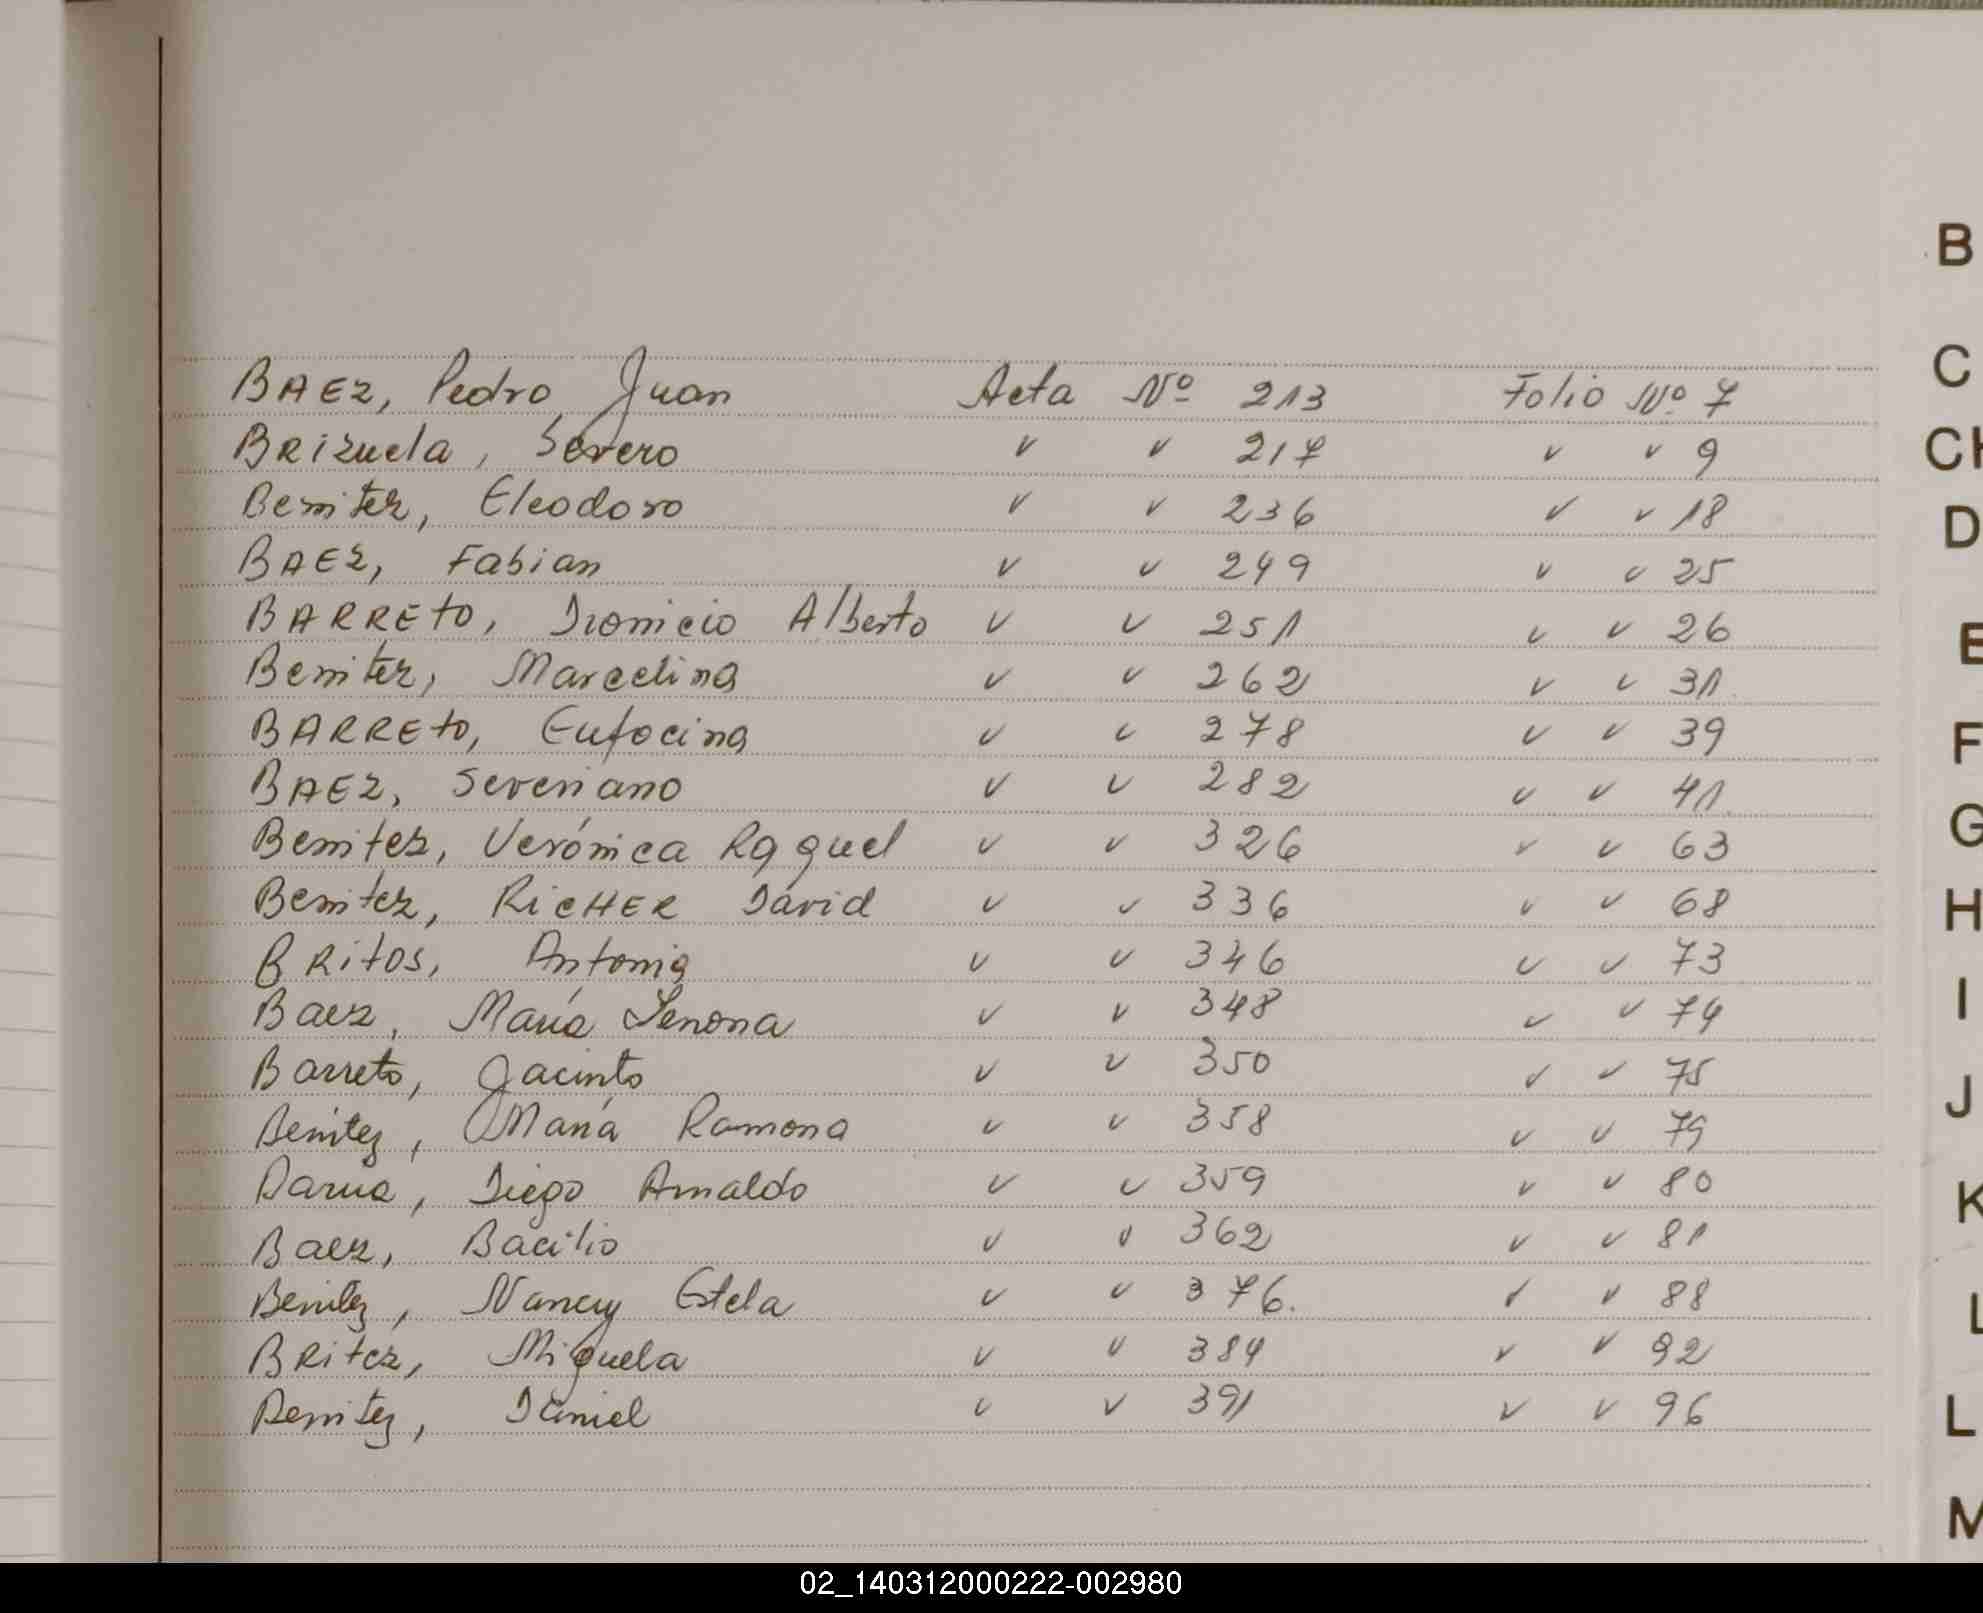 BAEZ, Pedro Juan Acta Nº 213 Folio Nº 7
BRIZuela, Severo " " 217 " " 9
Benitez, Eleodoro " " 236 " " 18
BAEZ, Fabian " " 249 " " 25
BARRETO, Dionicio Alberto " " 251 " " 26
Benitez, Marcelina " " 262 " " 31
BARRETO, Eufocina " " 278 " " 39
BAEZ, Severiano " " 282 " " 41
Benitez, Verónica Raquel " " 326 " " 63
Benitez, RicHER David " " 336 " " 68
BRitos, Antonia " " 346 " " 73
Baez, María Senona " " 348 " " 74
Barreto, Jacinto " " 350 " " 75
Benitez, María Ramona " " 358 " " 79
Diego Arnaldo " " 359 " " 80
Baez, Bacilio " " 362 " " 81
Benitez, Nancy Estela " " 376. " " 88
BRitez, Miguela " " 384 " " 92
Benitez, Daniel " " 391 " " 96
B
C
CH
D
E
F
G
H
I
J
K
L
L
M
02_140312000222-002980